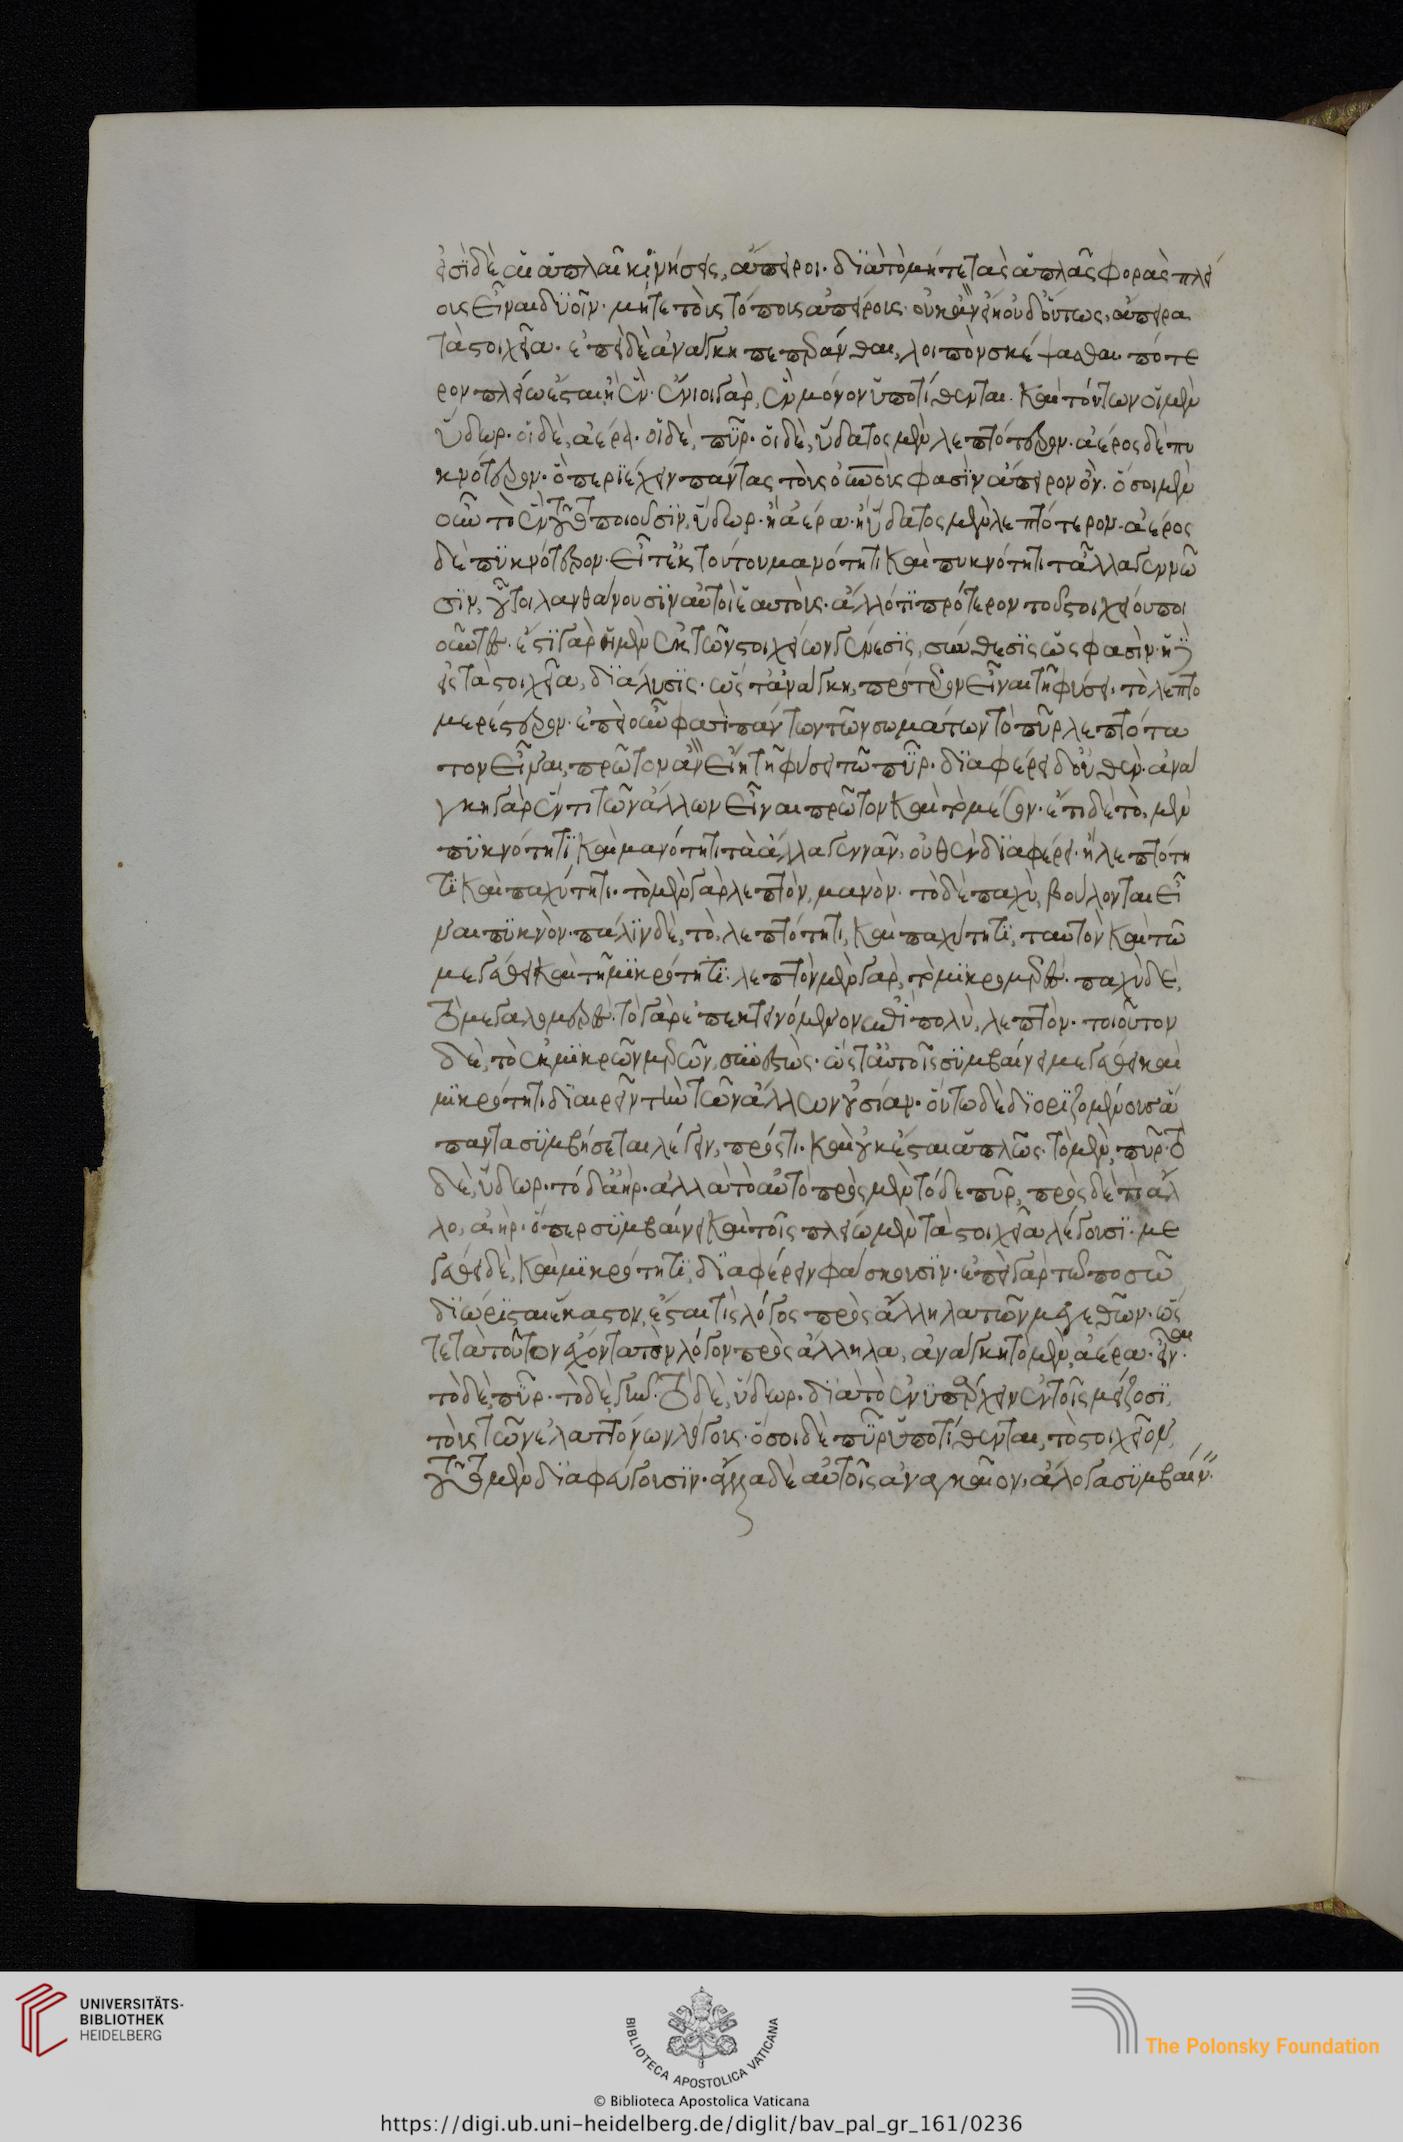 εἰσὶ δὲ αἱ ἁπλαῖ κινήσεις, ἄπειροι· διὰ τὸ μήτε τὰς ἁπλᾶς φορὰς πλεί
ους εἶναι δυοῖν· μήτε τοὺς τόπους ἀπείρους· οὐκ ἂν εἴη οὐδ' οὕτως, ἄπειρα
τὰ στοιχεῖα· ἐπεὶ δὲ ἀνάγκη πεπεράνθαι, λοιπὸν σκέψασθαι πότε
ρον πλείω ἔσται ἢ ἕν· ἔνιοι γὰρ, ἓν μόνον ὑποτίθενται. καὶ τούτων οἱ μὲν
ὕδωρ· οἱ δὲ, ἀέρα· οἱ δὲ, πῦρ· οἱ δὲ, ὕδατος μὲν λεπτότερον· ἀέρος δὲ πυ
κνότερον· ὃ περιέχειν πάντας τοὺς οὐρανούς φασὶν ἄπειρον ὄν. ὅσοι μὲν
οὖν τὸ ἓν τοῦτο ποιοῦσιν, ὕδωρ· ἢ ἀέρα· ἢ ὕδατος μὲν λεπτότερον· ἀέρος
δὲ πυκνότερον· εἶτ' ἐκ τούτου μανότητι καὶ πυκνότητι τἆλλα γεννῶ
σιν, οὗτοι λανθάνουσιν αὐτοὶ ἑαυτοὺς· ἄλλό τι πρότερον τοῦ στοιχείου ποι
οῦντες. ἔστι γὰρ ἡ μὲν ἐκ τῶν στοιχείων γένεσις, σύνθεσις ὥς φασὶν· ἡ δ'
εἰς τὰ στοιχεῖα, διάλυσις· ὥστ' ἀνάγκη, πρότερον εἶναι τῇ φύσει τὸ λεπτο
μερέστερον· ἐπεὶ οὖν φασὶ πάντων τῶν σωμάτων τὸ πῦρ λεπτότα
τον εἶναι, πρῶτον ἂν εἴη τῇ φύσει τὸ πῦρ· διαφέρει δ' οὐθέν· ἀνά
γκη γὰρ ἕν τι τῶν ἄλλων εἶναι πρῶτον καὶ μὴ τὸ μέσον. ἔτι δὲ τὸ, μὲν
πυκνότητι καὶ μανότητι τὰ ἄλλα γεννᾶν, οὐθὲν διαφέρει· ἢ λεπτότη
τι καὶ παχύτητι· τὸ μὲν γὰρ λεπτὸν, μανόν· τὸ δὲ παχὺ, βούλονται εἶ
ναι πυκνόν· πάλιν δὲ, τὸ, λεπτότητι, καὶ παχύτητι, ταυτὸν καὶ τῶ
μεγέθει καὶ τῇ μικρότητι· λεπτὸν μὲν γὰρ, τὸ μικρομερές· παχὺ δὲ,
τὸ μεγαλομερές· τὸ γὰρ ἐπεκτεινόμενον ἐπὶ πολὺ, λεπτόν· τοιοῦτον
δὲ, τὸ ἐκ μικρῶν μερῶν, συνεστὼς· ὥστ' αὐτοῖς συμβαίνει μεγέθει καὶ
μικρότητι διαιρεῖν τὴν τῶν ἄλλων οὐσίαν· οὕτω δὲ διοριζομένοις ἅ
παντα συμβήσεται λέγειν, πρός τι· καὶ οὐκ ἔσται ἁπλῶς· τὸ μὲν, πῦρ· τὸ
δὲ, ὕδωρ· τὸ δ' ἀήρ· ἀλλὰ τὸ αὐτὸ πρὸς μὲν τόδε πῦρ, πρὸς δέ τι ἄλ
λο, ἀήρ· ὅπερ συμβαίνει καὶ τοῖς πλείω μὲν τὰ στοιχεῖα λέγουσι· με
γέθει δὲ, καὶ μικρότητι, διαφέρειν φάσκουσιν· ἐπεὶ γὰρ τῶ ποσῶ
διώρισται ἕκαστον, ἔσται τὶς λόγος πρὸς ἄλληλα τῶν μεγεθῶν· ὥς
τε τὰ τοῦτον ἔχοντα τὸν λόγον πρὸς ἄλληλα, ἀνάγκη τὸ μὲν, ἀέρα εἶναι·
τὸ δὲ, πῦρ· τὸ δὲ, γῆν· τὸ δὲ, ὕδωρ· διὰ τὸ ἐνυπάρχειν ἐν τοῖς μείζοσι,
τοὺς τῶν ἐλαττόνων λόγους· ὅσοι δὲ πῦρ ὑποτίθενται, τὸ στοιχεῖον,
τοῦτο μὲν διαφεύγουσιν· ἄλλα δὲ αὐτοῖς ἀναγκαῖον, ἄλογα συμβαίνειν·
UNIVERSITÄTS-
BIBLIOTHEK
HEIDELBERG
BIBLIOTECA APOSTOLICA VATICANA
The Polonsky Foundation
© Biblioteca Apostolica Vaticana
https://digi.ub.uni-heidelberg.de/diglit/bav_pal_gr_161/0236